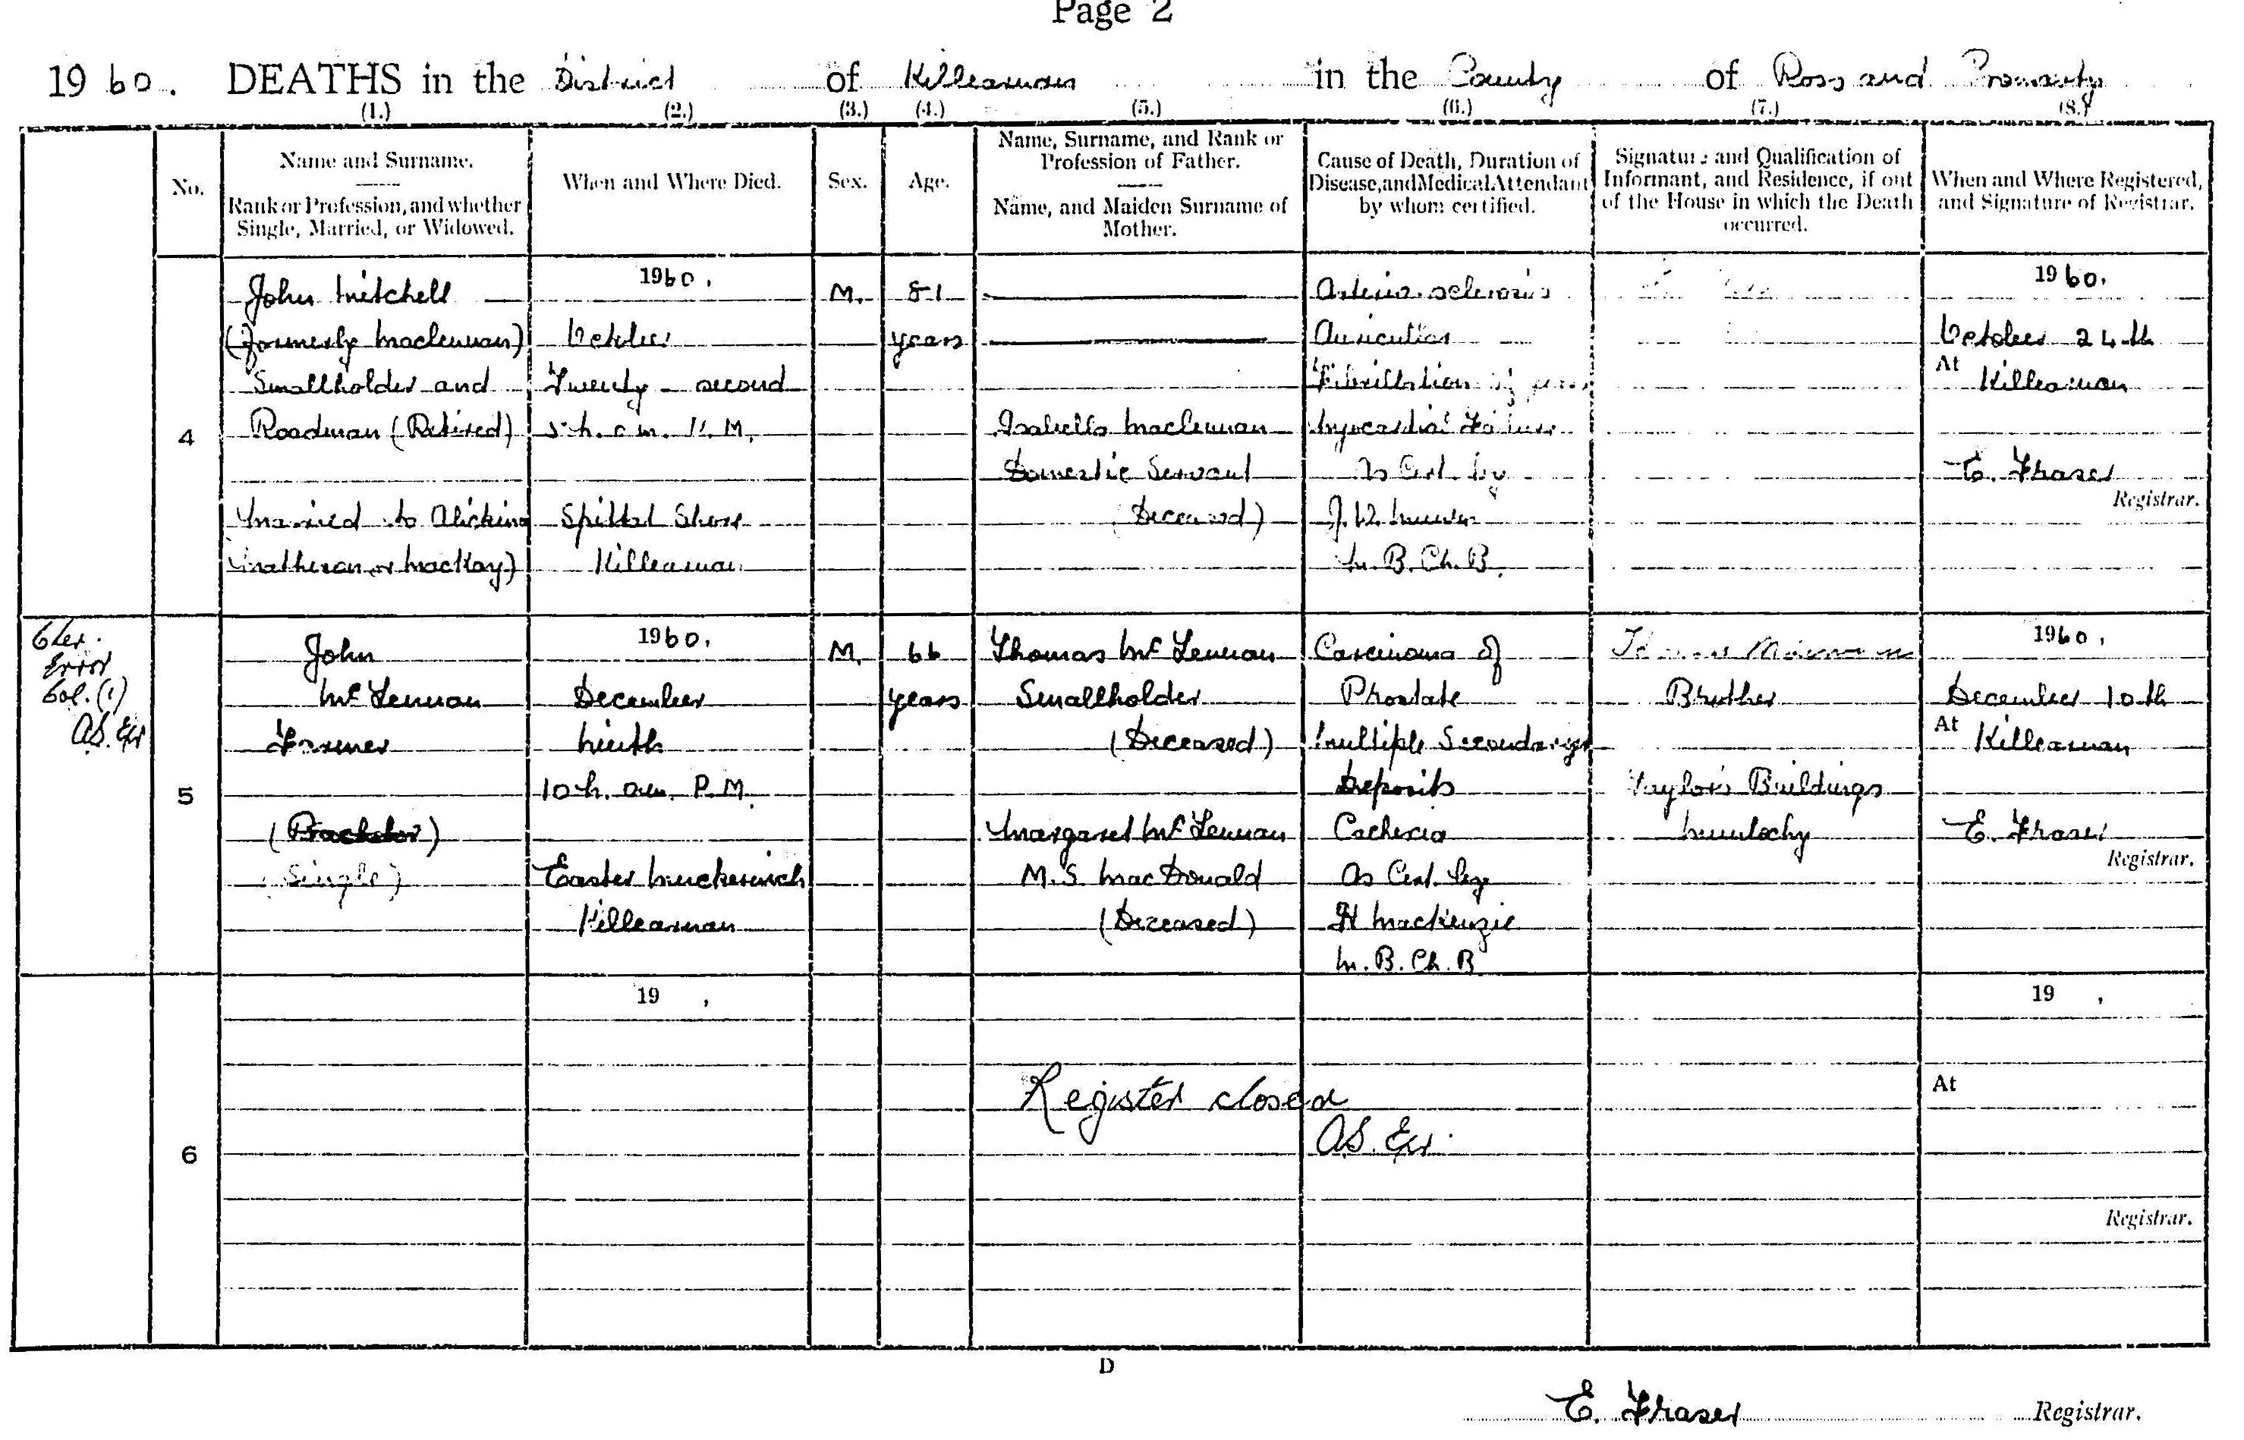 Page 2
1960. DEATHS in the District of Killearnan in the County of Ross and Cromarty
(1.) (2.) (3.) (4.) (5.) (6.) (7.) (8.)
No.
Name and Surname.
Rank or Profession, and whether
Single, Married, or Widowed.
When and Where Died.
Sex.
Age.
Name, Surname, and Rank or
Profession of Father.
Name, and Maiden Surname of
Mother.
Cause of Death, Duration of
Disease, and Medical Attendant
by whom certified.
Signature and Qualification of
Informant, and Residence, if out
of the House in which the Death
occurred.
When and Where Registered,
and Signature of Registrar.
4
John Mitchell
(formerly Maclennan)
Smallholder and
Roadman (Retired)
Married to Alickina
Matheson or MacKay)
1960.
October
Twenty-second
5 h. 0 m. P.M.
Spittal Shore
Killearnan
M.
81
years
Isabella Maclennan
Domestic Servant
(Deceased)
Arterio-sclerosis
Auricular
Fibrillation
Myocardial Failure
As Cert. by
M.B. Ch.B.
1960.
October 24th
At Killearnan
E. Fraser
Registrar.
Cler.
Error
Col. (1)
A.S. Exr
5
John
McLennan
Farmer
(Bachelor)
(Single)
1960.
December
Ninth
10 h. 0 m. P.M.
Easter Muckernich
Killearnan
M.
66
years
Thomas McLennan
Smallholder
(Deceased)
Margaret McLennan
M.S. MacDonald
(Deceased)
Carcinoma of
Prostate
Multiple Secondary
Deposits
Cachexia
As Cert. by
H Mackenzie
M.B. Ch.B
Brother
Taylor's Buildings
Munlochy
1960.
December 10th
At Killearnan
E. Fraser
Registrar.
6
19 ,
Register closed
A.S. Exr.
19 ,
At
Registrar.
D
E. Fraser Registrar.